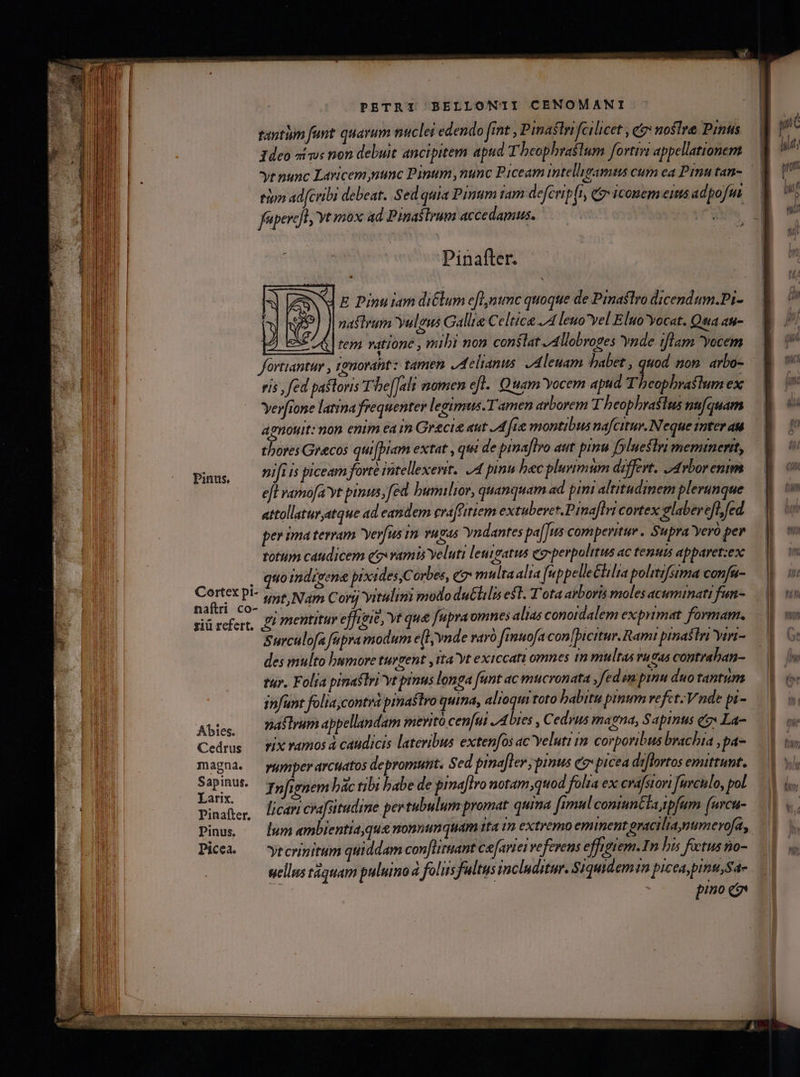 PETRI BELLONII CENOMANI
tantùm sunt quarum nuclei edendo sint, Pinastri scilicet, & nostræ Pinus
Ideo πίτυς non debuit ancipitem apud Theophrastum sortiri appellationem
vt nunc Laricem, nunc Pinum, nunc Piceam intelligamus cum ea Pinu tan-
tùm adscribi debeat. Sed quia Pinum iam descripsi, & iconem eius adposui
superest, vt mox ad Pinastrum accedamus.
Pinaster.
DE Pinu iam dictum est, nunc quoque de Pinastro dicendum. Pi-
nastrum vulgus Galliæ Celticæ Aleuo vel Eluo vocat. Qua au-
tem ratione, mihi non constat Allobroges vnde istam vocem
sortiantur, ignorant: tamen Aelianus Aleuam habet, quod non arbo-
ris, sed pastoris Thessali nomen est. Quam vocem apud Theophrastum ex
versione latina frequenter legimus. Tamen arborem Theophrastus nusquam
agnouit: non enim ea in Græcia aut Asiæ montibus nascitur. Neque inter au
thores Græcos quispiam extat, qui de pinastro aut pinu sylvestri meminerit,
Pinus. nisi is piceam fortè intellexerit. A pinu hæc plurimum differt. Arbor enim
est ramosa vt pinus, sed humilior, quanquam ad pini altitudinem plerunque
attollatur, atque ad eandem crassitiem extuberet. Pinastri cortex glaber est, sed
per ima terram versus in rugas vndantes passus comperitur. Supra verò per
totum caudicem & ramis veluti leuigatus & perpolitus ac tenuis apparet: ex
quo indigenæ pixides, Corbes, & multa alia suppellectilia politissima consu-
Cortex pi- unt, Nam Corij vitulini modo ductilis est. Tota arboris moles acuminati fun-
nastri co-
giũ refert. gi mentitur effigiẽ, vt quæ supra omnes alias conoidalem exprimat formam.
Surculosa supra modum est, vnde rarò sinuosa conspicitur. Rami pinastri viri-
des multo humore turgent, ita vt exiccati omnes in multas rugas contrahan-
tur. Folia pinastri vt pinus longa sunt ac mucronata, sed in pinu duo tantùm
insunt folia, contrà pinastro quina, alioqui toto habitu pinum refert. Vnde pi-
Abies. nastrum appellandam meritò censui Abies, Cedrus magna, Sapinus & La-
Cedrus rix ramos à caudicis lateribus extensos ac veluti in corporibus brachia, pa-
magna. rumper arcuatos depromunt. Sed pinaster, pinus & picea distortos emittunt.
Sapinus. Insignem hâc tibi habe de pinastro notam, quod folia ex crassiori surculo, pol
Larix.
Pinaster. licari crassitudine per tubulum promat quina simul coniuncta, ipsum surcu-
Pinus. lum ambientia, quæ nonnunquam ita in extremo eminent gracilia, numerosa,
Picea. vt crinitum quiddam constituant cæsariei referens effigiem. In his fœtus no-
uellus tãquam puluino à foliis fultus includitur. Siquidem in picea, pinu, Sa-
pino &